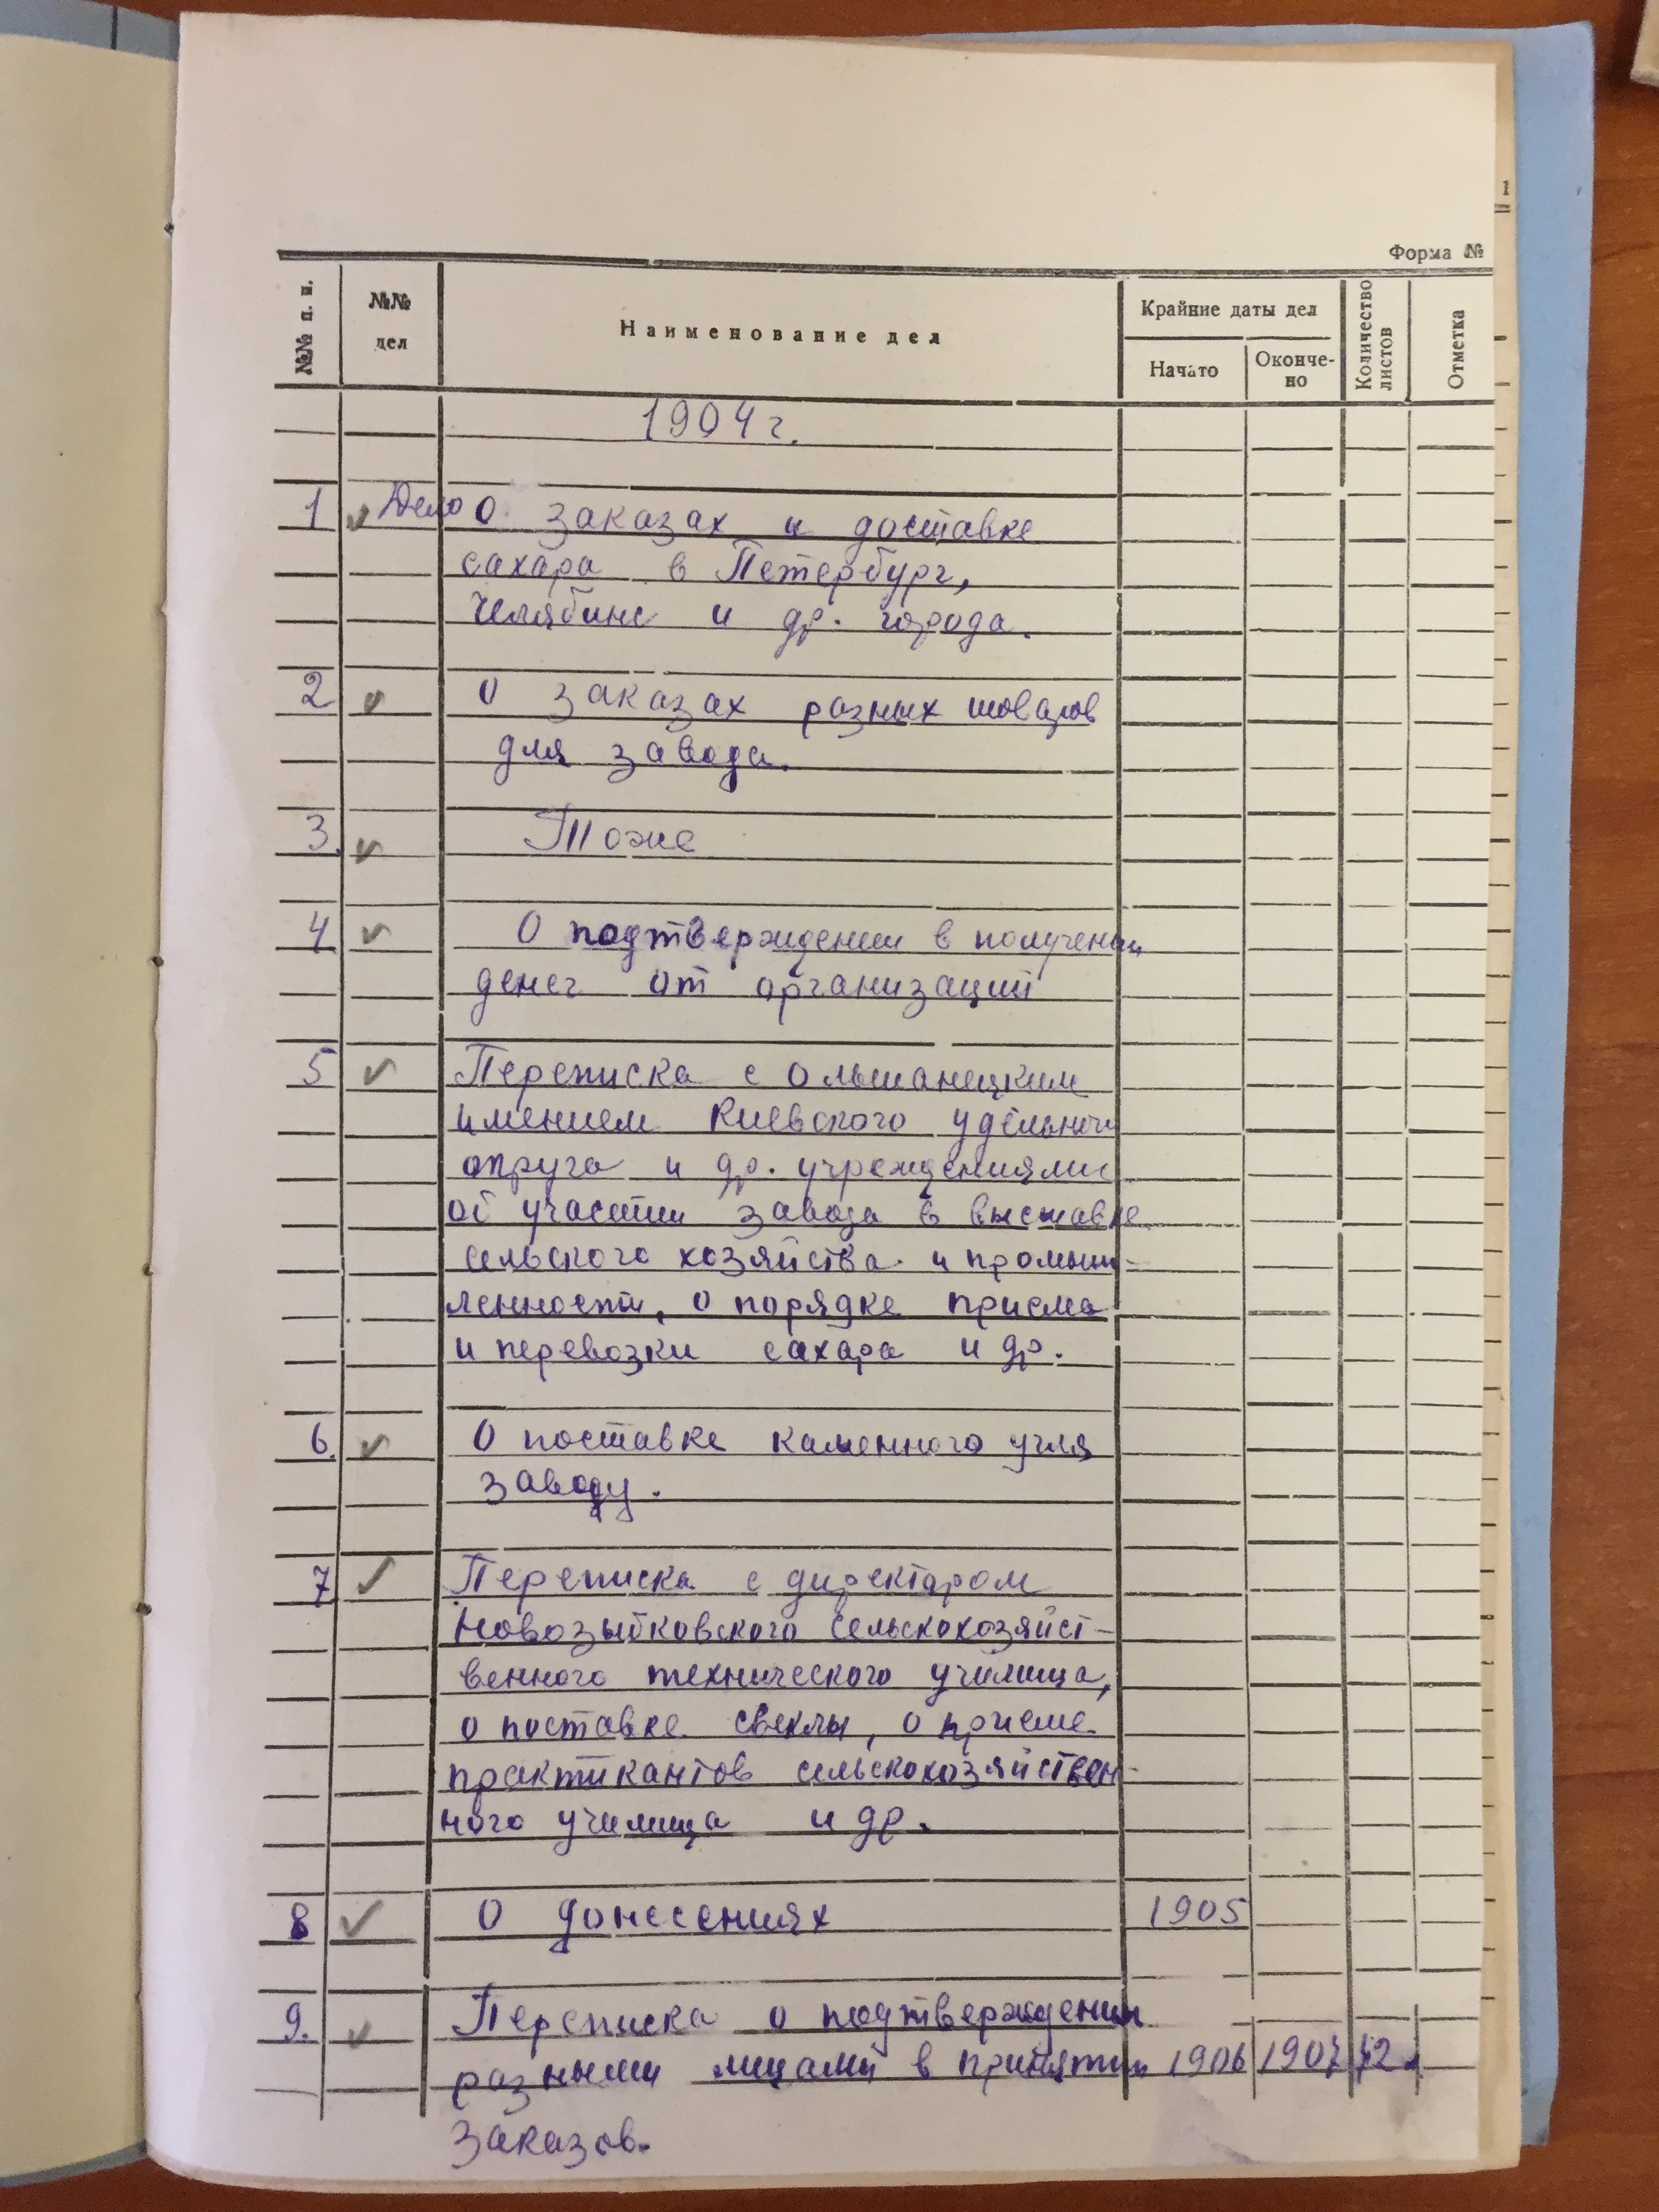 1
Форма №
№№ п. п.
№№ дел
Наименование дел
Крайние даты дел
Начато
Окончено-
но
Количество листов
Отметка
1904 г.
1 Дело О заказах и доставке
сахара в Петербург,
Челябинс и др. города.
2 О заказах разных товаров
для завода.
3. Тоже
4 О подтверждении в получении
денег от организаций
5 Переписка с Ольшанецким
имением Киевского удельного
округа и др. учреждениями
об участии завода в выставке
сельского хозяйства и промыш-
ленности, о порядке приема
и перевозки сахара и др.
6. О поставке каменного угля
заводу.
7. Переписка с директором
Новозыбковского сельскохозяйст-
венного технического училища,
о поставке свеклы, о приеме
практикантов сельскохозяйствен-
ного училища и др.
8 О донесениях 1905
9. Переписка о подтверждении
разными лицами в принятии 1906 1907
заказов.